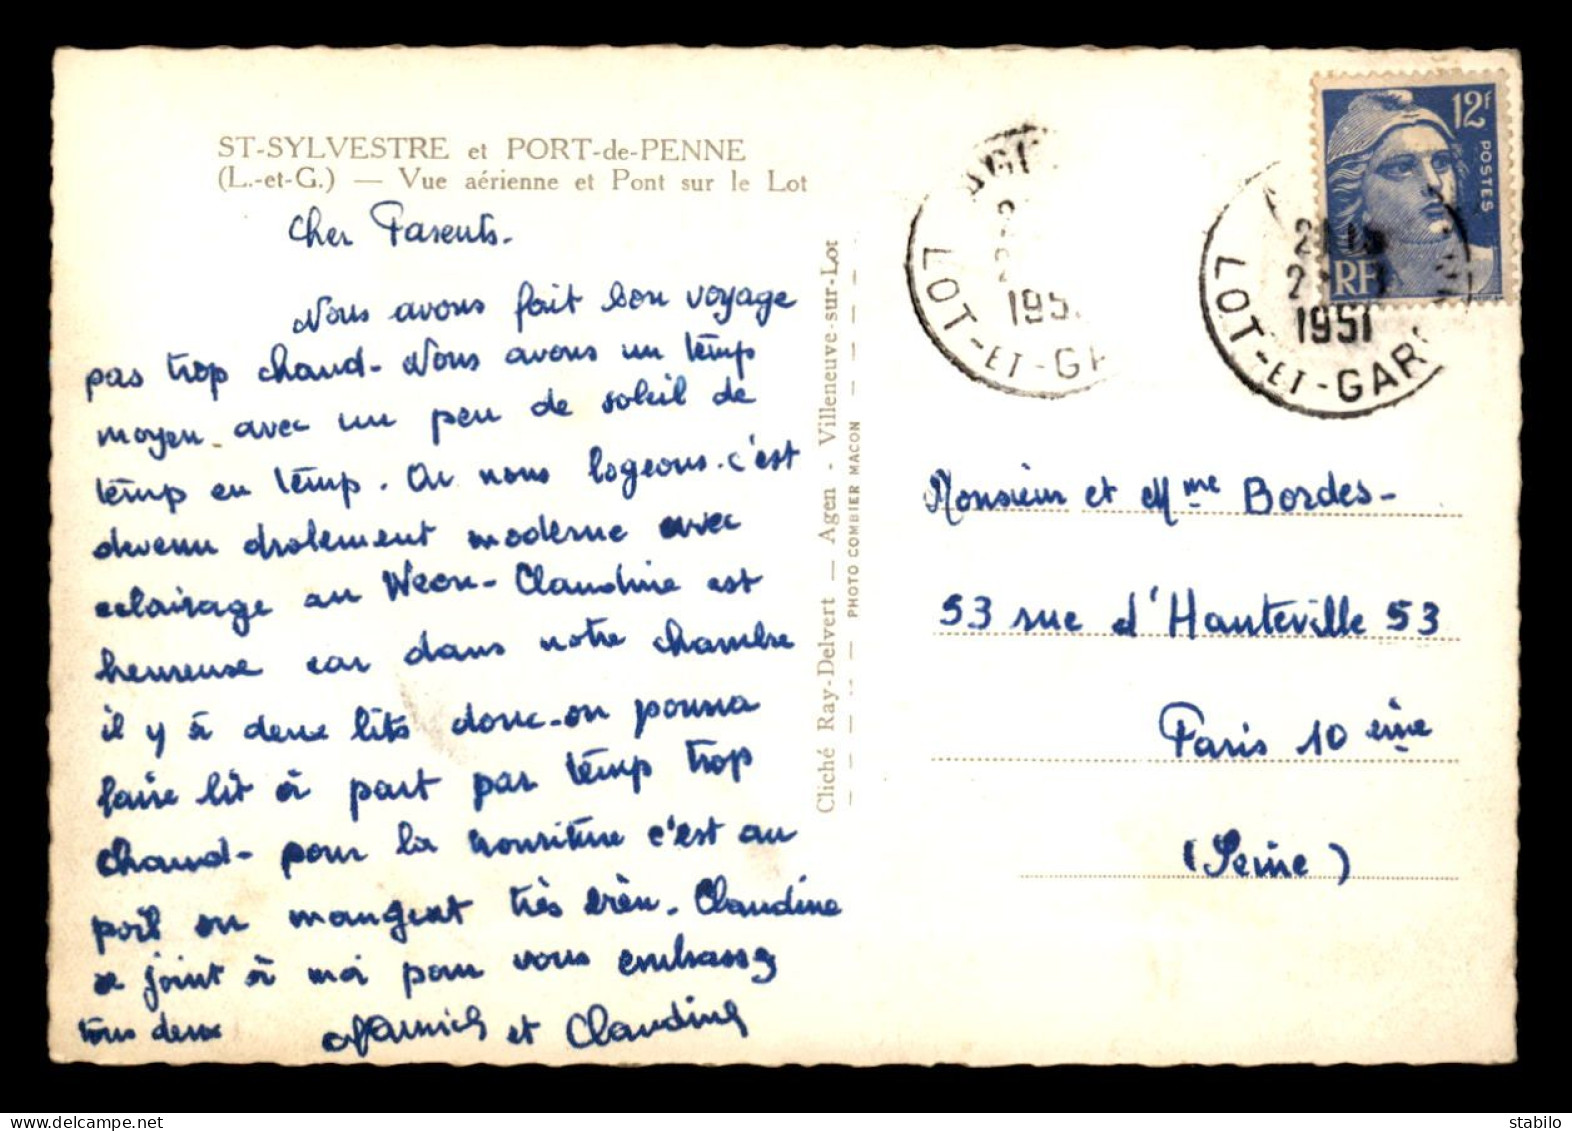 ST-SYLVESTRE et PORT-de-PENNE
(L.-et-G.) — Vue aérienne et Pont sur le Lot
Cher Parents.
Nous avons fait bon voyage
pas trop chaud - Nous avons un temp
moyen - avec un peu de soleil de
temp en temp. Ou nous logeons. c'est
devenu drolement moderne avec
eclairage au Neon - Claudine est
heureuse car dans notre chambre
il y à deux lits donc - on pourra
faire lit à part par temp trop
chaud - pour là nouriture c'est au
poil on mangent très bien - Claudine
se joint à moi pour vous embrasser
tous deux et Claudine
Cliché Ray-Delvert — Agen - Villeneuve-sur-Lot
PHOTO COMBIER MACON
LOT-ET-GA
195
12f
POSTES
RF
1951
LOT-ET-GAR
Monsieur et Mme Bordes-
53 rue d'Hauteville 53
Paris 10 eme
(Seine)
stabilo
www.delcampe.net